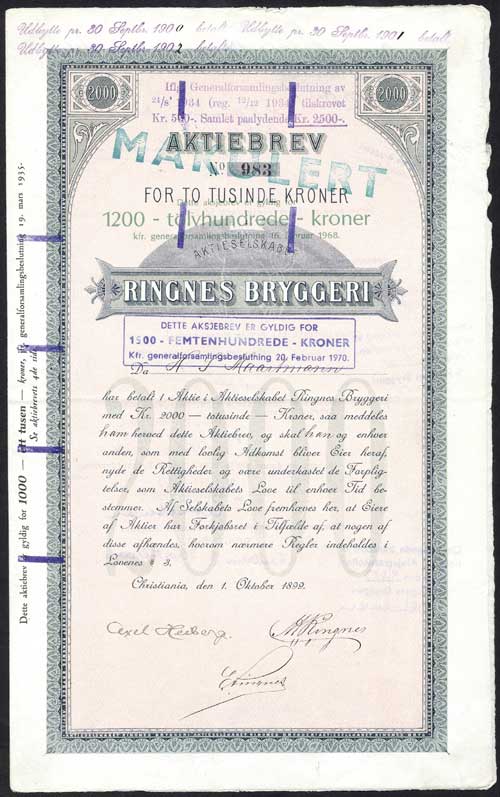 Udbytte pr. 30 Septbr. 1900 betalt Udbytte pr. 30 Septbr. 1901 betalt
Udbytte pr. 30 Septbr. 1902 betalt
2000 2000
Iflg. Generalforsamlingsbeslutning av
1934 (reg. 12/12 1934) tilskrevet
Kr. 500-. Samlet paalydende Kr. 2500-.
AKTIEBREV
MAKULERT
No 983
FOR TO TUSINDE KRONER
aksjebrev er gyldig
1200 - tolvhundrede - kroner
kfr. generalforsamlingsbeslutning 16. februar 1968.
AKTIESELSKABET
RINGNES BRYGGERI
DETTE AKSJEBREV ER GYLDIG FOR
1500 - FEMTENHUNDREDE - KRONER
Kfr. generalforsamlingsbeslutning 20. Februar 1970.
Da
har betalt 1 Aktie i Aktieselskabet Ringnes Bryggeri
med Kr. 2000 — totusinde — Kroner, saa meddeles
ham herved dette Aktiebrev, og skal han og enhver
anden, som med lovlig Adkomst bliver Eier heraf,
nyde de Rettigheder og være underkastet de Forplig-
telser, som Aktieselskabets Love til enhver Tid be-
stemmer. Af Selskabets Love fremhæves her, at Eiere
af Aktier har Forkjøbsret i Tilfælde af, at nogen af
disse afhændes, hvorom nærmere Regler indeholdes i
Lovenes § 3.
2000
Christiania, den 1. Oktober 1899.
Axel Heiberg.
Ringnes
Ringnes
Dette aktiebrev er gyldig for 1000 — Ett tusen — kroner, generalforsamlingsbeslutning 19. mars 1935.
Se aktiebrevets 4de side